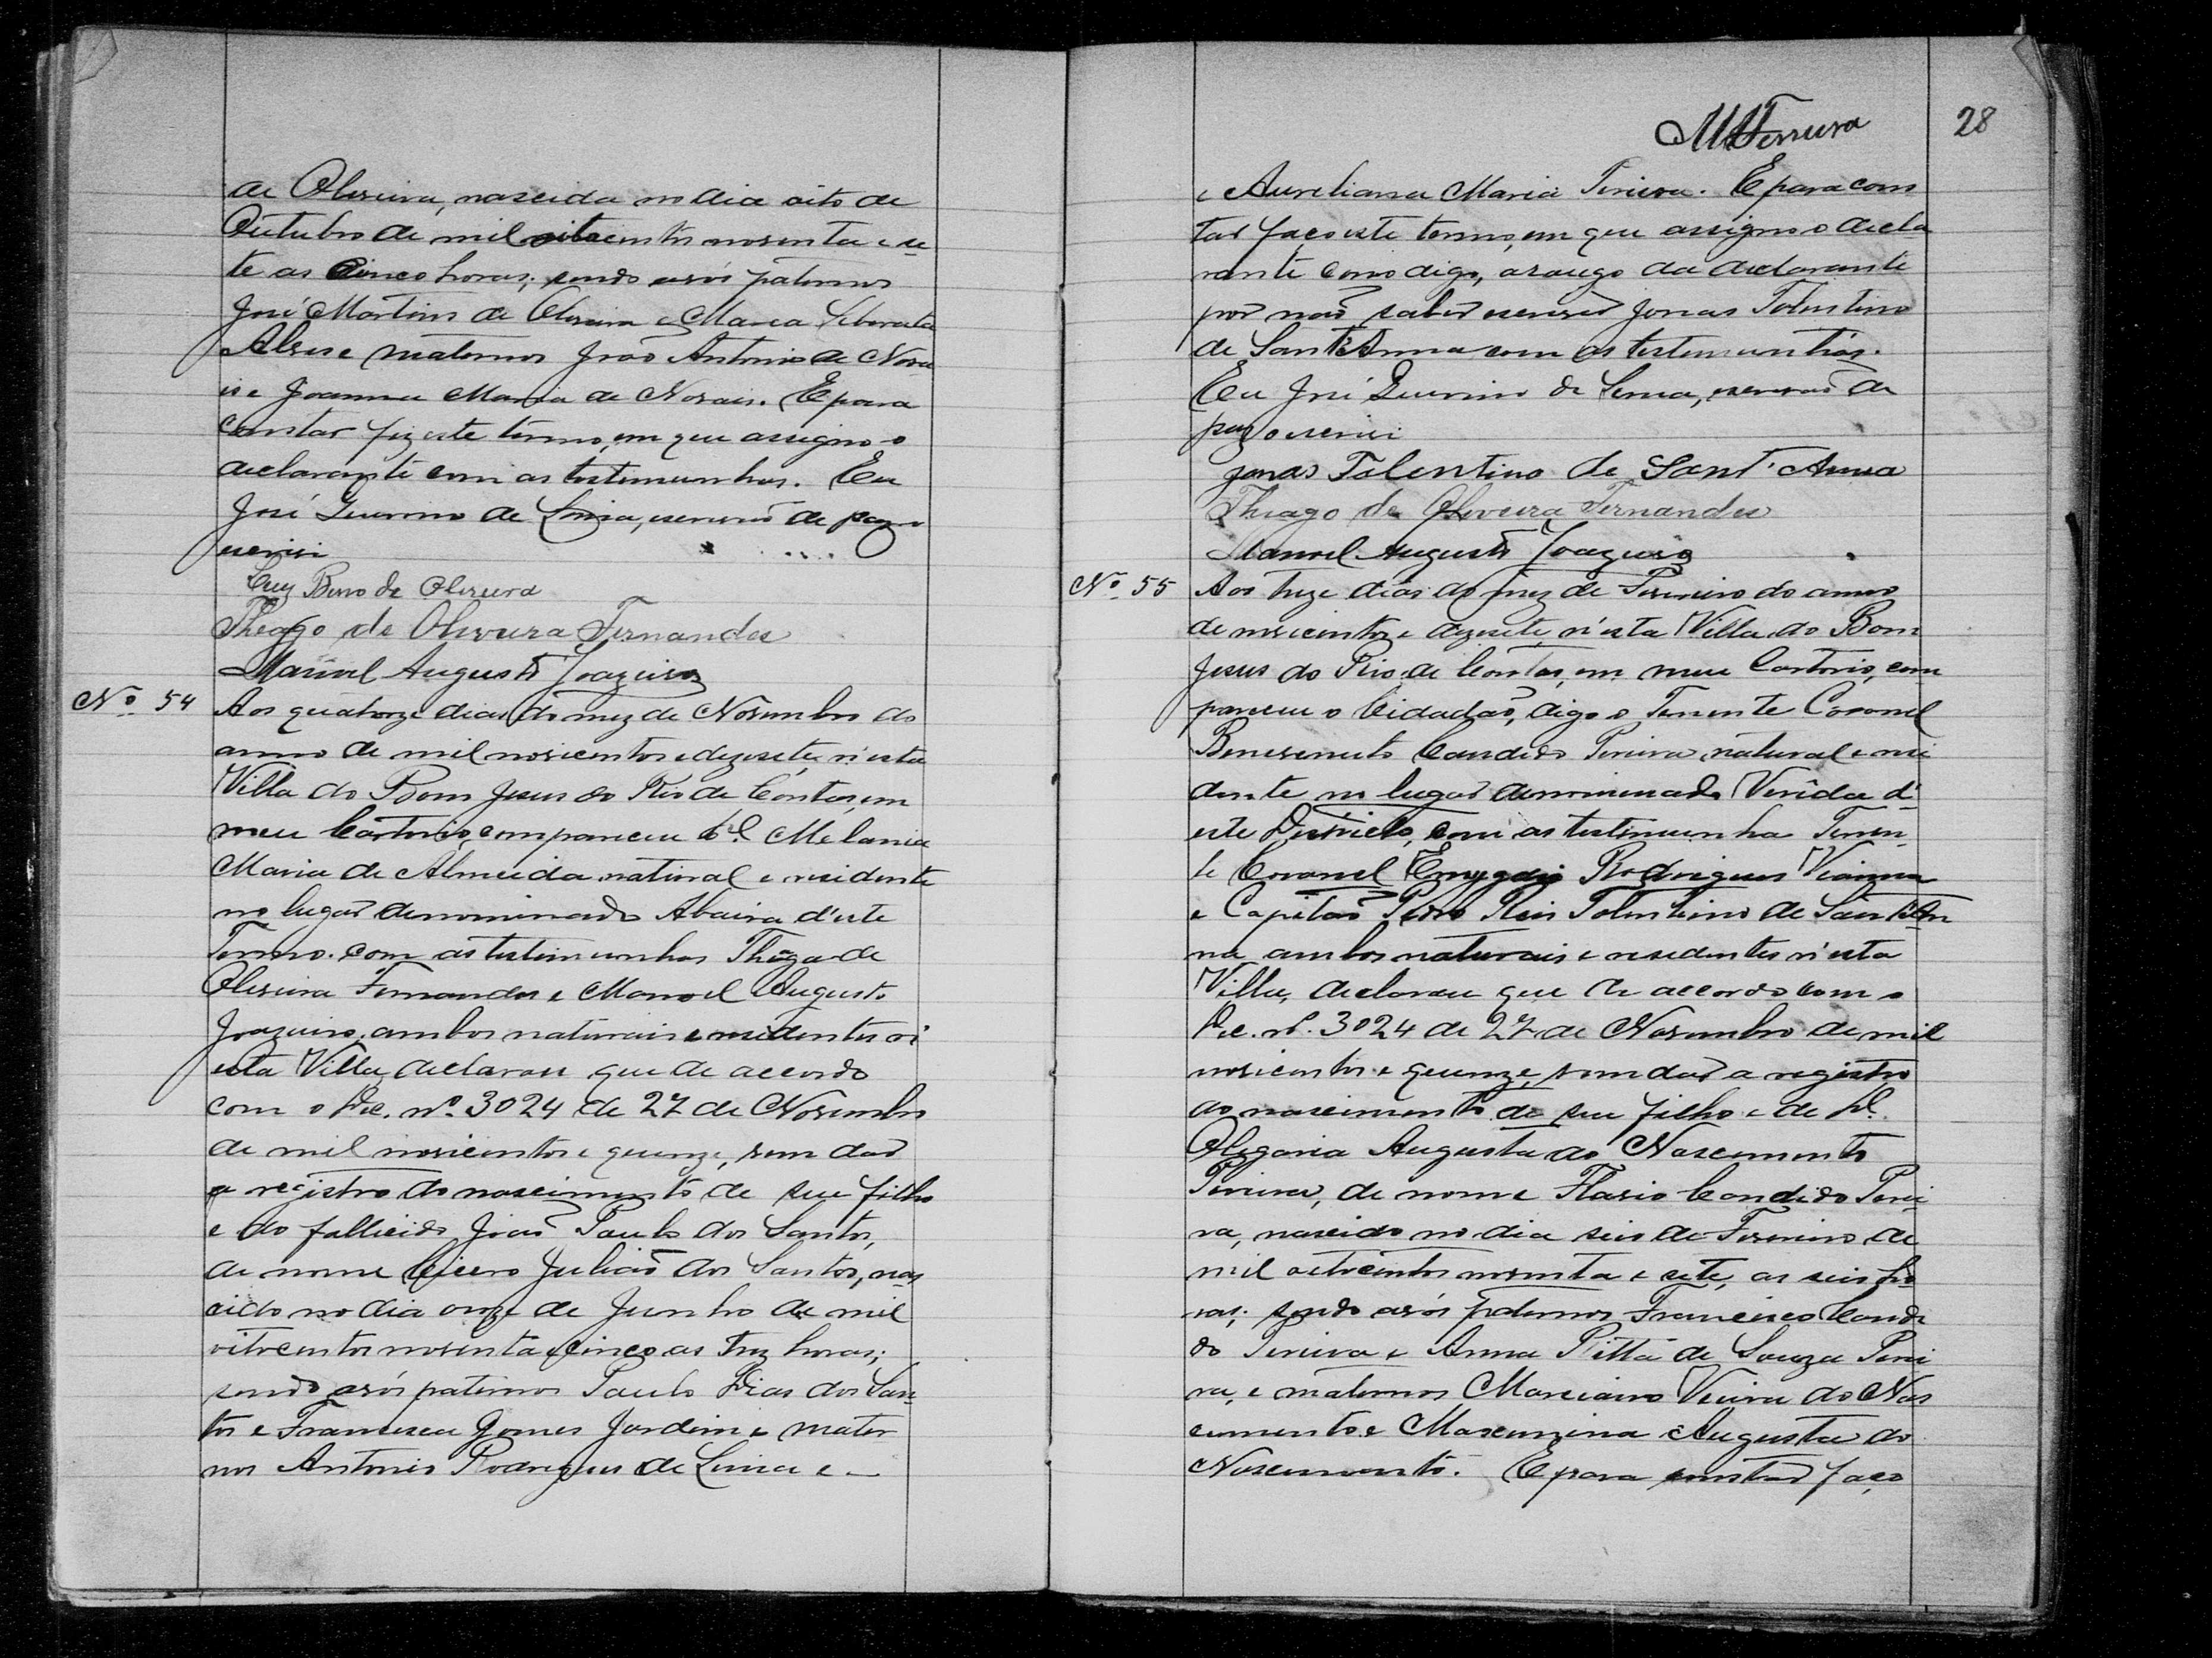 de Oliveira, nascida no dia oito de
Outubro de mil oitocentos noventa e se
te as Cinco horas; sendo avós paternos
José Martins de Oliveira e Maria Liberata
Alves e maternos João Antonio de Nova
is e Joanna Maria de Novais. E para
constar fiz este termo, em que assigno o
declarante com as testimunhas. Eu
José Guerino de Lima, escrivão de paz o
escrivi
Luiz Bero de Oliveira
Thiago de Oliveira Fernandes
Manoel Augusto Joazeiro
Nº 54 Aos quatorze dias do mez de Novembro do
anno de mil novicentos e dezesete, n'esta
Villa do Bom Jesus do Rio de Contas, em
meu Cartorio, compareceu Melania
Maria de Almeida natural e residente
no lugar denominado Abaira d'este
Termo. com as testimunhas Thiago de
Oliveira Fernandes e Manoel Augusto
Joazeiro, ambos naturais e residentes n'
esta Villa, declarou que de accordo
com o Dec. nº 3024 de 27 de Novembro
de mil novicentos e quinze, vem dar
a registro do nascimento de seu filho
e do fallicido João Paulo dos Santos,
de nome Cicero Julião dos Santos, nas
cido no dia onze de Junho de mil
oitocentos noventa e cinco as trez horas;
sendo avós paternos Paulo Dias dos San
tos e Francisca Gomes Jardim e mater
nos Antonio Rodrigues de Lima e
28
MFerreira
e Aureliana Maria Pereira. E para cons
tar faço este termo, em que assigno o decla
rante como digo, a rougo da declarante
por não saber escrever Jonas Tolentino
de Sant'Anna com as testimunhas.
Eu José Guerino de Lima, escrivão de
paz o escrivi
Jonas Tolentino de Sant'Anna
Thiago de Oliveira Fernandes
Manoel Augusto Joazeiro
Nº 55 Aos treze dias do mez de Fevereiro do anno
de novicentos e dezesete, n'esta Villa do Bom
Jesus do Rio de Contas, em meu Cartorio, com
pareceu o Cidadão, digo o Tenente Coronel
Benevenuto Candido Pereira, natural e resi
dente no lugar denominado Verêda d'
este Districto, com as testimunha Tenen
te Coronel Emygdio Rodrigues Vianna
e Capitão Pedro Reis Tolentino de Sant'An
na ambos naturais e residentes n'esta
Villa, declarou que de accordo com o
Dec. nº 3024 de 27 de Novembro de mil
novicentos e quinze, vem dar a registro
do nascimento de seu filho e de D.
Olegaria Augusta do Nascimento
Pereira, de nome Flavio Candido Perei
ra, nascido no dia seis de Fevereiro de
mil oitocentos noventa e sete, as seis ho
ras; sendo avós paternos Francisco Candi
do Pereira e Anna Ritta de Souza Perei
ra, e maternos Marciano Vieira do Nas
cimento e Maximina Augusta do
Nascimento. E para constar faço